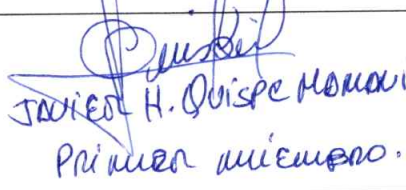 JAVIER H. QUISPE MAMANI
PRIMER MIEMBRO.